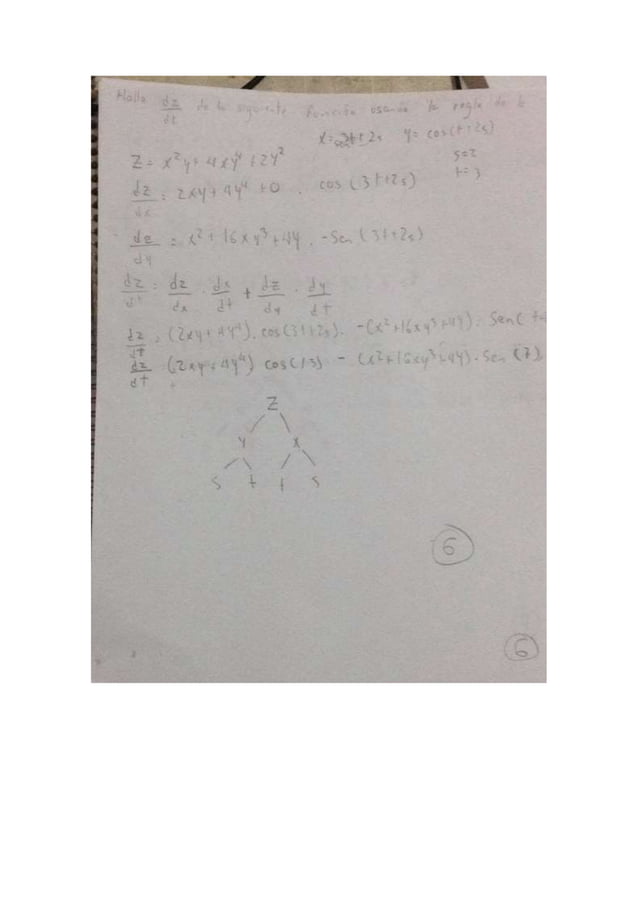 Halla dz/dt de la siguiente función usando la regla de la
x = 3t+2s y = cos(t+2s)
z = x²y + 4xy⁴ + 2y²
s=2
t=3
dz/dx = 2xy + 4y⁴ + 0 . cos(3t+2s)
dz/dy = x² + 16xy³ + 4y . -Sen(3t+2s)
dz/dt = dz/dx . dx/dt + dz/dy . dy/dt
dz/dt = (2xy + 4y⁴). cos(3t+2s). -(x²+16xy³+4y). Sen( t
dz/dt (2xy + 4y⁴) cos(13) - (x²+16xy³+4y). Sen (7)
Z
y x
s t t s
6
6